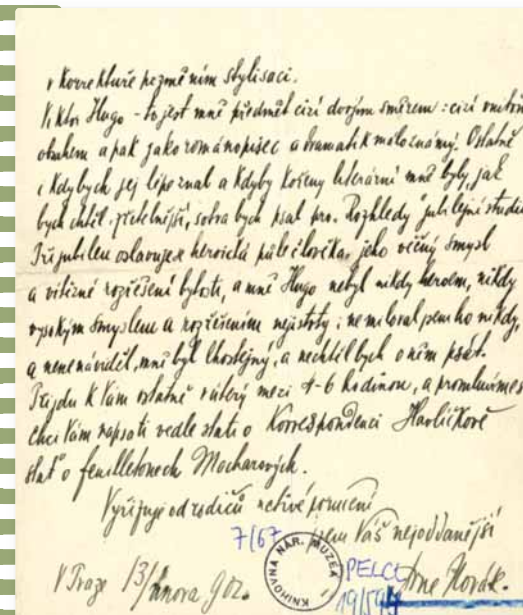 v korrektuře nezměním stylisaci.
Viktor Hugo – to jest mně předmět cizí dvojím směrem: cizí vnitřní
obsahem a pak jako románopisec a dramatik málo známý. Ostatně
i kdybych jej lépe znal a kdyby kořeny literární mně byly, jak
bych chtěl zřetelnější, sotva bych psal pro Rozhledy "jubilejní studii
Při jubileu oslavuje se heroická píle člověka, jeho věčný smysl
a vítězné rozřešení bytosti, a mně Hugo nebyl nikdy heroem, nikdy
vysokým smyslem a rozřešením nejistoty; nemiloval jsem ho nikdy,
a nenenáviděl, mně byl lhostejný, a nechtěl bych o něm psát.
Přijdu k Vám ostatně v úterý mezi 4-6 hodinou, a promluvíme s
Chci Vám napsati vedle stati o Korrespondenci Havlíčkově
stať o feuilletonech Macharových.
Vyřizuje od rodičů uctivé poručení
jsem Váš nejoddanější
7/67
KNIHOVNA NÁR. MUZEA
PELCL
V Praze 13/února 902.
Arne Novák.